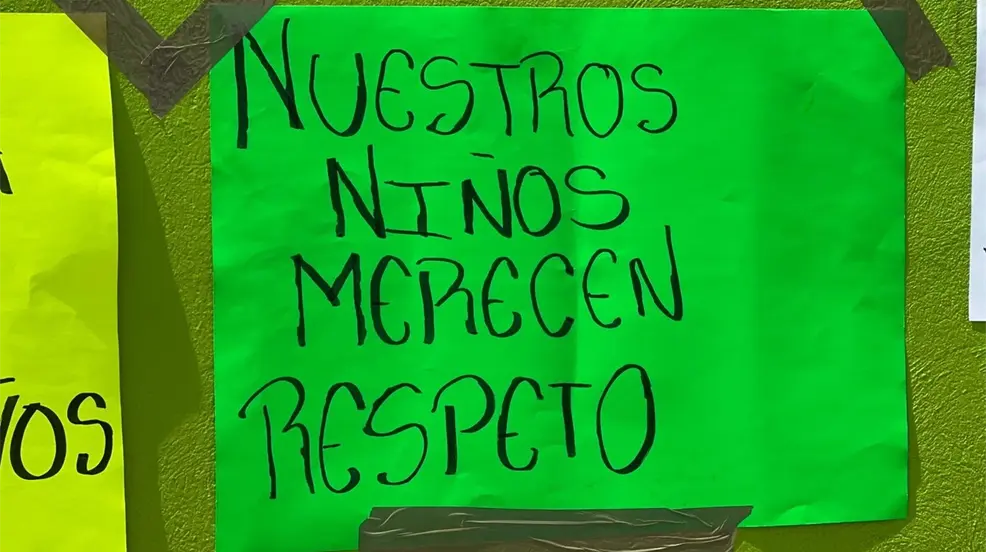 NUESTROS
NIÑOS
MERECEN
RESPETO